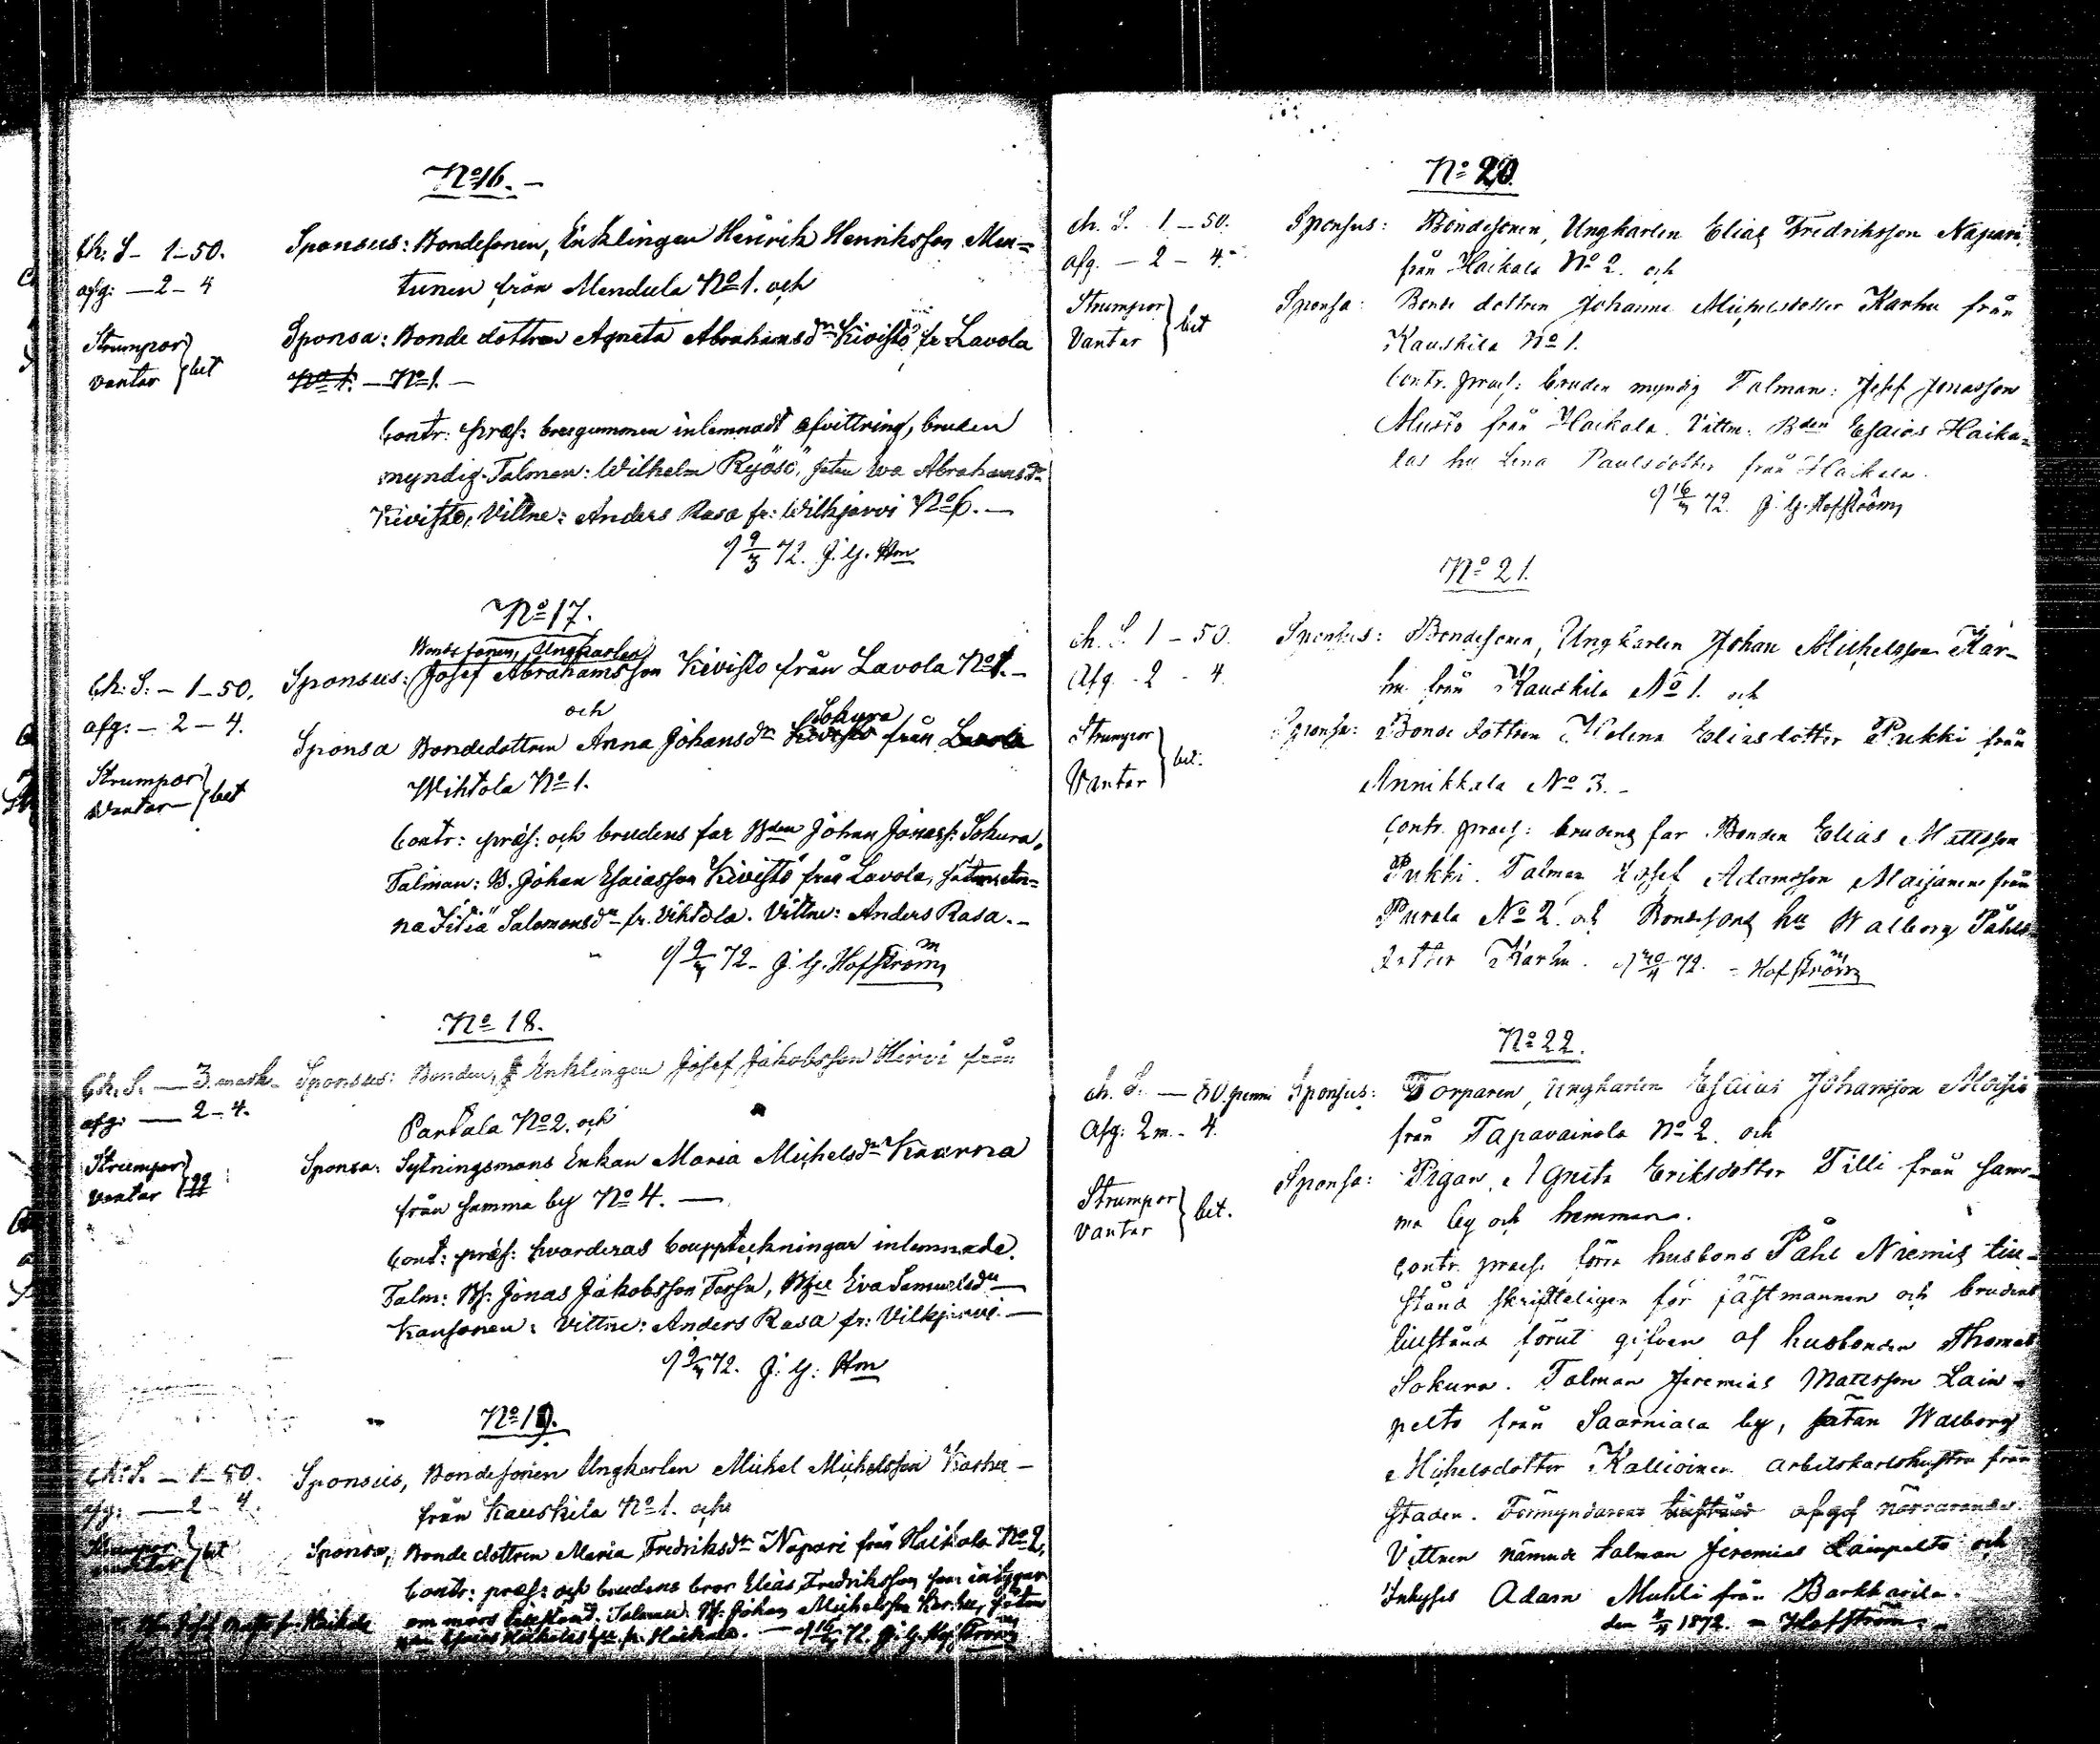 No 16. –
Ch: S – 1–50.
afg: – 2 – 4
Strumpor
vantar } bet
Sponsus: Bondesonen, Enklingen Henrik Henriksson Men=
tunen från Mendula No 1. och
Sponsa: Bonde dottren Agneta Abrahamsdr Kivistö fr Lavola
No 1. – No 1. –
Contr: præs: breigummen inlemnadt afvittring, bruden
myndig. Talman: Wilhelm Ryösö, säten Abrahamsdr
Kivistö, Vittne: Anders Rasa fr: Wilkjärvi No 6. –
9/3 72. J. G. Hm
No 17.
Ch: S: – 1–50.
afg: – 2 – 4.
Strumpor
Vantar – } bet
Bondesonen, Ungkarlen
Sponsus: Josef Abrahamsson Kivistö från Lavola No 1. –
och
Sokura
Sponsa Bondedottren Anna Johansdr Kivistö från Lavola
Wihtola No 1.
Contr: præs: och brudens far Bden Johan Jonass: Sokura,
Talman: B. Johan Esaiasson Kivistö från Lavola, säten An=
na Salomonsdr fr. Vihtola. Vittne: Anders Rasa. –
72 – J. G. Hofström
No 18.
Ch. S. — 3. mark
afg: — 2 – 4.
Strumpor
Vantar }
Sponsus: Bonden, Enklingen Josef Jakobsson Hirvi från
Partala No 2. och
Sponsa: Sytningsmans Enkan Maria Michelsdr Kaarna
från samma by No 4. —
Cont: præs: hvarderas bouppteckningar inlemnade.
Talm: Bs: Jonas Jakobsson , Eva Samuelsdr —
Kansonen: Vittne: Anders Rasa fr: Vilkjärvi. —
72. J. G: Hm
No 19.
Ch: S. – 1–50.
afg: — 2 – 4.
Strumpor
vantar } bet
Sponsus, Bondesonen Ungkarlen Michel Michelsson Karhu –
från Kauskila No 1. och
Sponsa, Bonde dottren Maria Fredriksdr Napari från Haikala No 2,
Contr: præs: och brudens bror Elias Fredriksson som intygar
om mors tillstånd. Talman: Bs: Johan Michelsson Karhu, säten
Esaias Haikalas hu fr. Haikala. – 72. J. G. Hofström
fr: Haikala
No 20.
ch. S. 1 – 50.
afg. – 2 – 4. –
Strumpor
Vantar } bet
Sponsus: Bondesonen, Ungkarlen Elias Fredriksson Napari
från Haikala No 2. och
Sponsa: Bonde dottren Johanna Michelsdotter Karhu från
Kauskila No 1.
Contr. præs: bruden myndig Talman: Josef Jonasson
Musto från Haikala. Vittn. Bden Esaias Haika=
las hu Lena Paulsdotter från Haikala.
72. J. G. Hofström
No 21.
ch. S. 1 – 50.
Afg. – 2 – 4.
Strumpor
Vantar } bet.
Sponsus: Bondesonen, Ungkarlen Johan Michelsson Kar–
hu från Kauskila No 1. och
Sponsa: Bonde dottren Helena Eliasdotter Pukki från
Annikkala No 3. –
Contr. præs: brudens far Bonden Elias Mattsson
Pukki. Talman Josef Adamsson Maijanen från
Purala No 2. och Bondesons hu Walborg Påhls–
dotter Karhu. 72. – Hofström
No 22.
ch. S. — 80. penni
Afg: 2 m. – 4.
Strumpor
vantar } bet.
Sponsus: Torparen, Ungkarlen Esaias Johansson Moisio
från Tapavainola No 2. och
Sponsa: Pigan, Agneta Eriksdotter Tilli från sam–
ma by och hemman.
Contr. præs. förra husbons Påhl Niemis till–
stånd skrifteligen för fästmannen och brudens
tillstånd förut gifven af husbonden Thomas
Sokura. Talman Jeremias Matsson Lain–
pelto från Saarniala by, sätan Walborg
Michelsdotter Kallioinen arbetskarlshustru från
staden. Förmyndarens tillstånd närvarande.
Vittnen nämnde talman Jeremias Lainpelto och
Inhyses Adam Muhli från Barkkarila.
den 1872. – Hofström. –